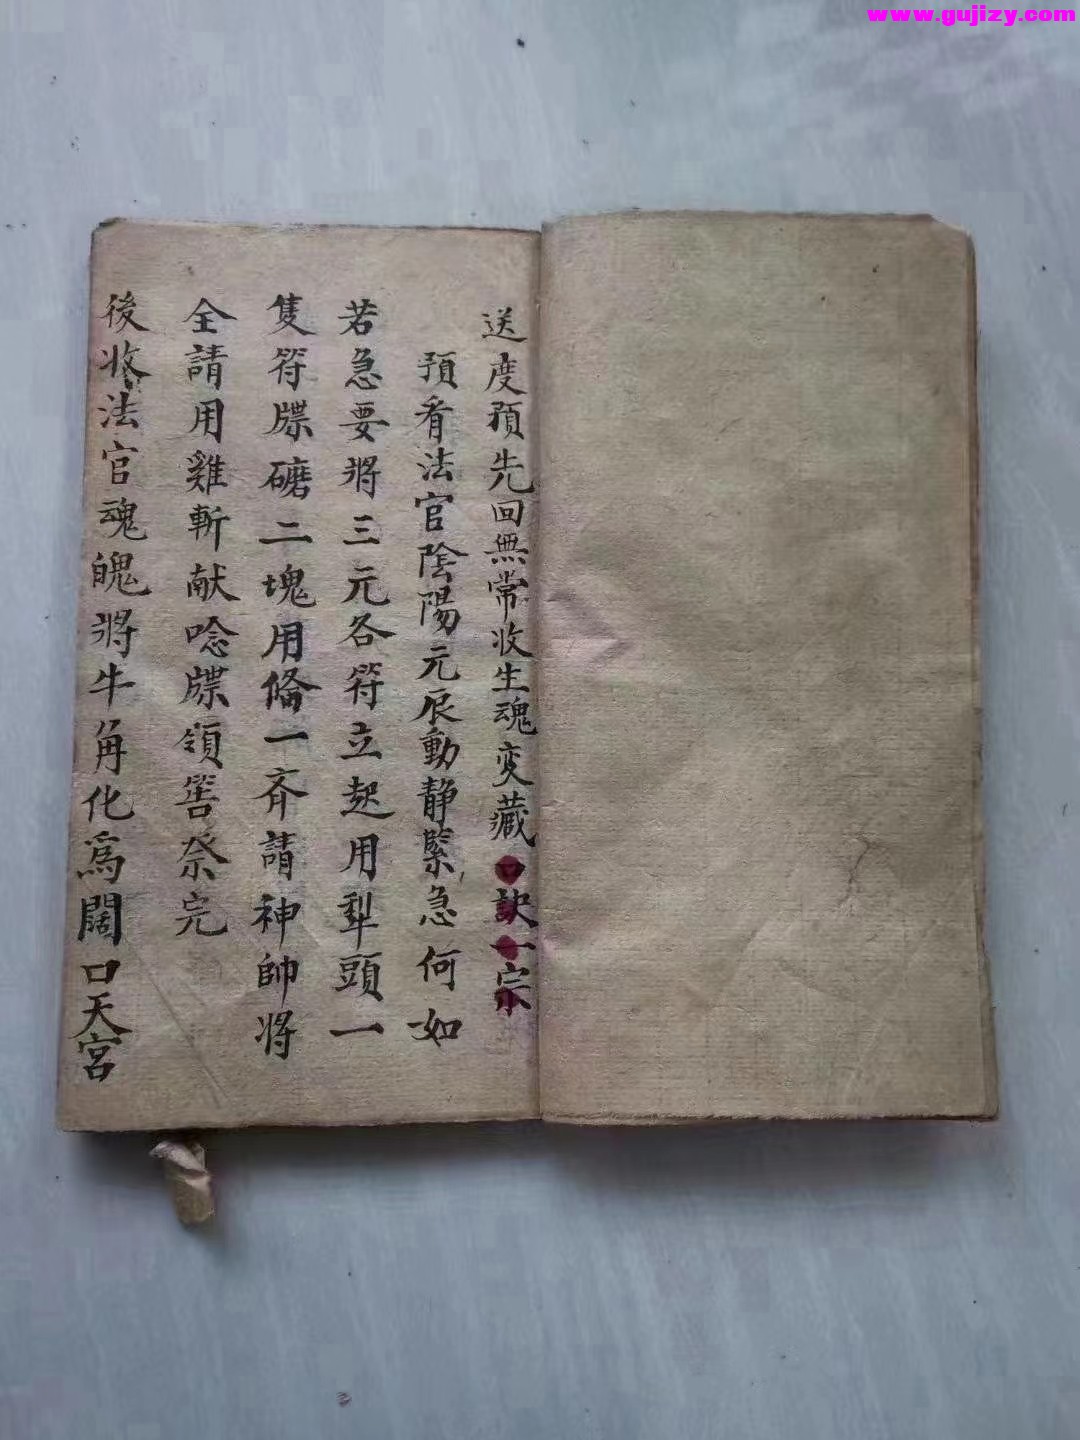 www.gujizy.com
送度預先回無常收生魂变藏口訣一宗
預看法官陰陽元辰動静緊急何如
若急要將三元各符立起用犁頭一
隻符牒磄二塊用俻一斉請神帥将
全請用雞斬献唸牒領筶祭完
後收法官魂魄將牛角化爲闊口天宮